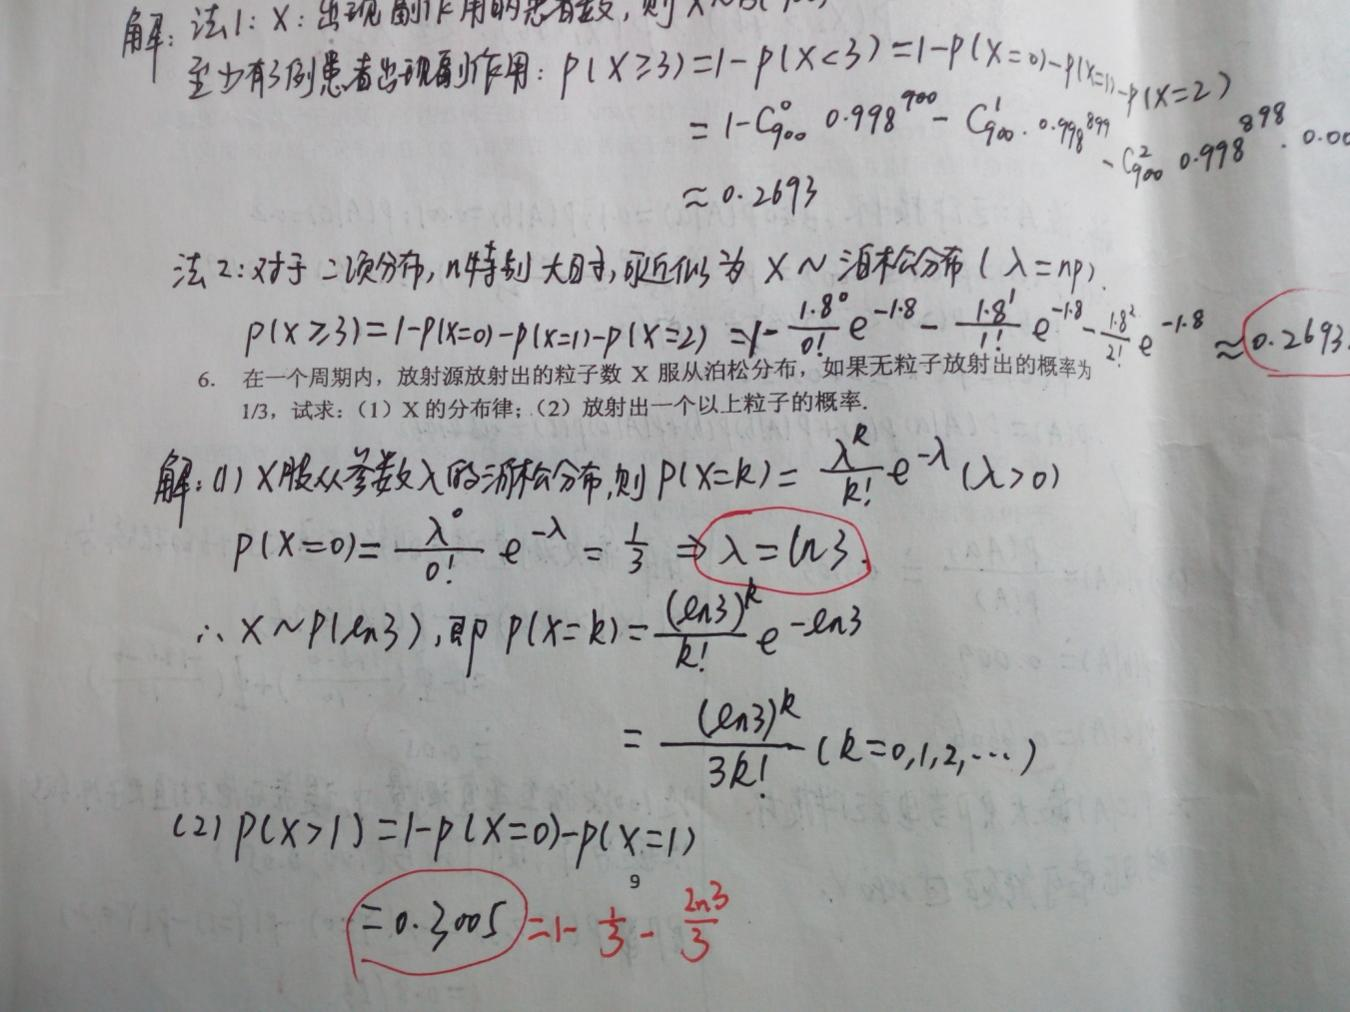 解: 法1: X: 出现副作用的患者数, 则 X~B(900
至少有3例患者出现副作用: P(X≥3)=1-P(X<3)=1-P(X=0)-P(X=1)-P(X=2)
=1-C⁰₉₀₀ 0.998⁹⁰⁰ - C¹₉₀₀·0.998⁸⁹⁹ - C²₉₀₀ 0.998⁸⁹⁸·0.00
≈0.2693
法2: 对于二项分布, n特别大时, 可近似为 X~泊松分布(λ=np).
P(X≥3)=1-P(X=0)-P(X=1)-P(X=2) =1-1.8⁰/0! e^{-1.8} - 1.8¹/1! e^{-1.8} - 1.8²/2! e^{-1.8} ≈0.2693.
6. 在一个周期内，放射源放射出的粒子数 X 服从泊松分布，如果无粒子放射出的概率为
1/3，试求：（1）X 的分布律；（2）放射出一个以上粒子的概率.
解: (1) X服从参数λ的泊松分布, 则 P(X=k)= λ^k/k! e^{-λ} (λ>0)
P(X=0)= λ⁰/0! e^{-λ} = 1/3 ⇒ λ=ln3.
∴ X~P(ln3), 即 P(X=k)= (ln3)^k/k! e^{-ln3}
= (ln3)^k/3k! (k=0,1,2,…)
(2) P(X>1)=1-P(X=0)-P(X=1)
9
=0.3005 =1- 1/3 - ln3/3